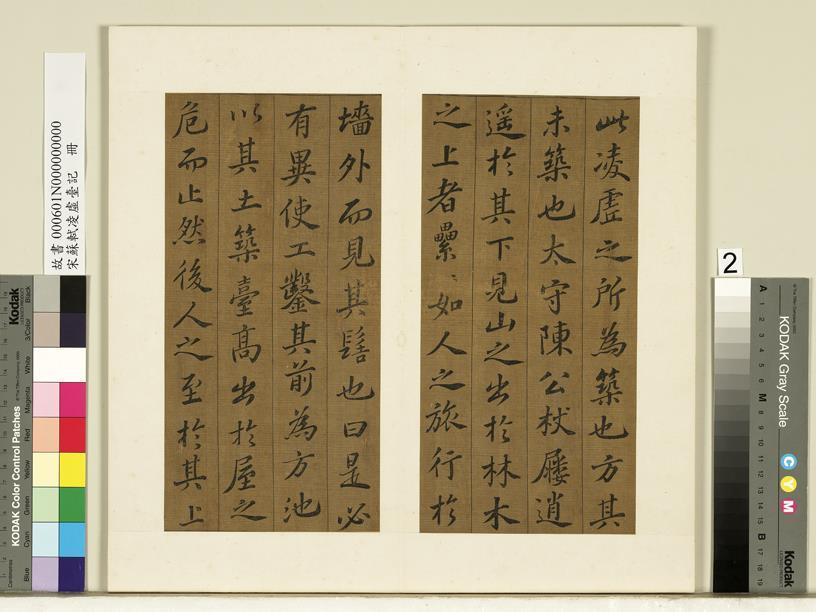 此凌虛之所為築也方其
未築也太守陳公杖屨逍
遥於其下見山之出於林木
之上者纍〻如人之旅行於
墻外而見其髻也曰是必
有異使工鑿其前為方池
以其土築臺高出於屋之
危而止然後人之至於其上
故書 000601N000000000
宋蘇軾凌虛臺記 冊
2
KODAK Gray Scale
A 1 2 3 4 5 6 M 8 9 10 11 12 13 14 15 B 17 18 19
C Y M
Kodak
Kodak
KODAK Color Control Patches
Blue Cyan Green Yellow Red Magenta White 3/Color Black